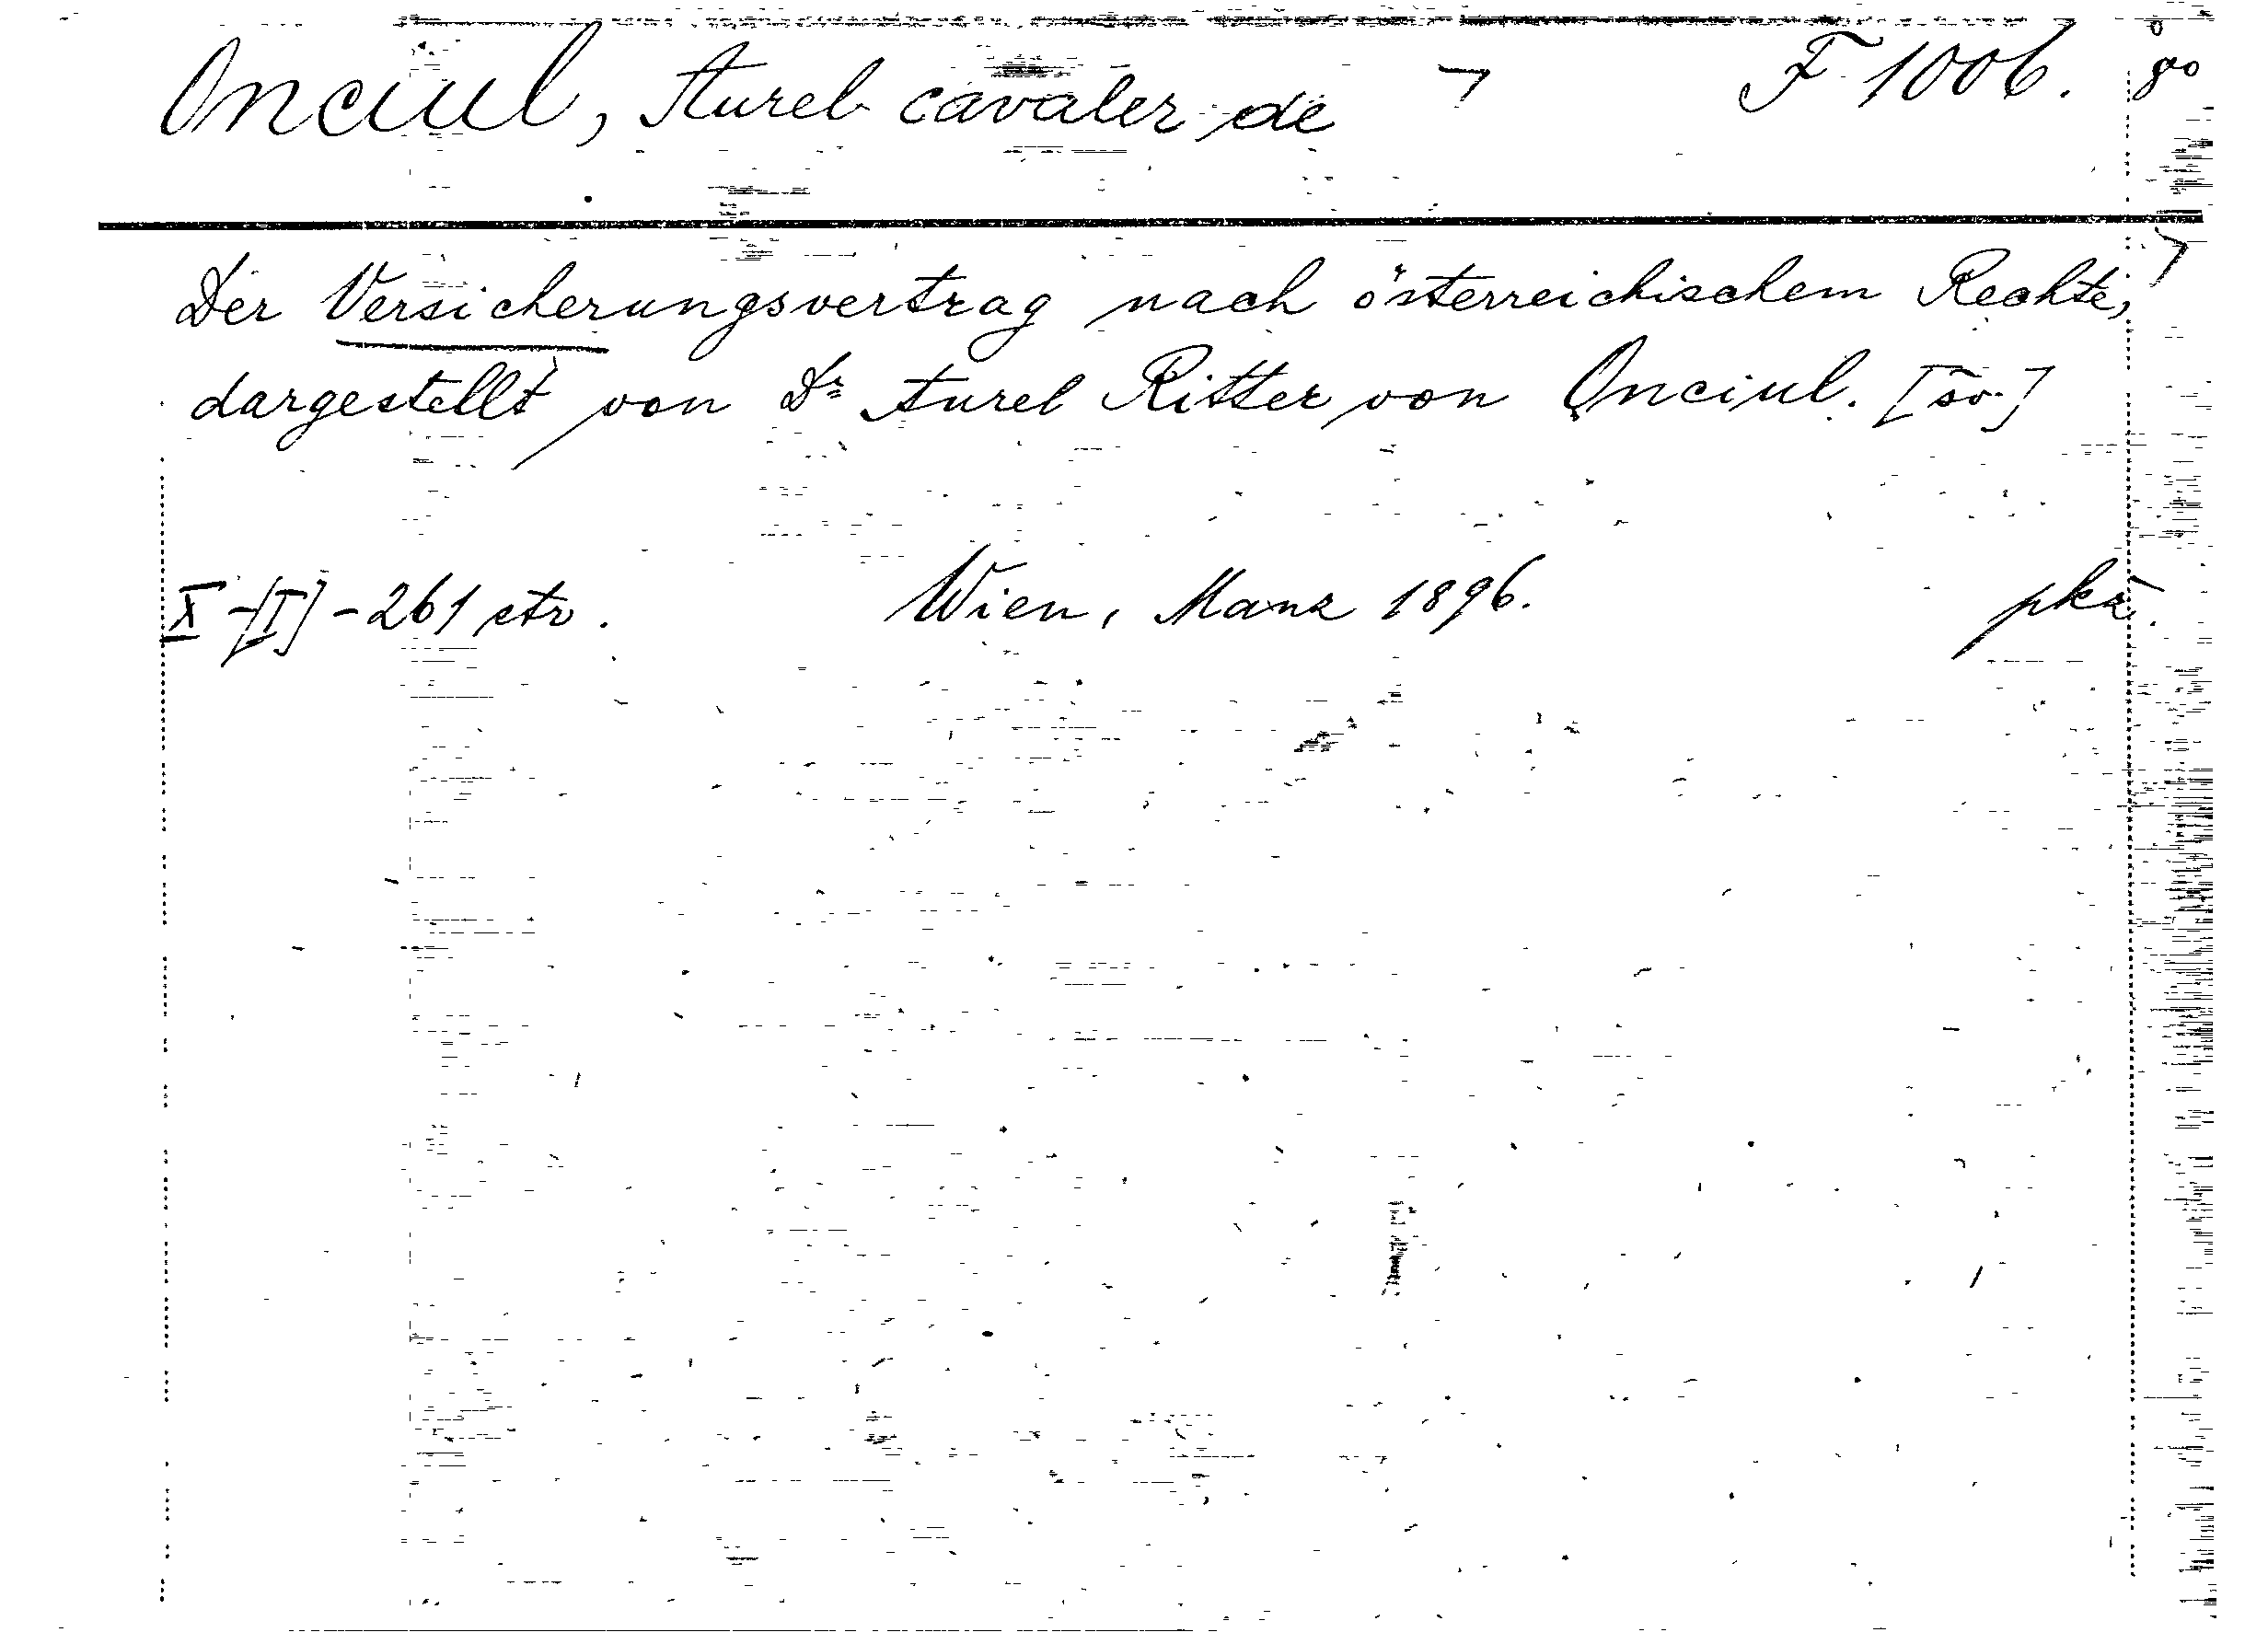 Onciul, Aurel cavaler de ¬ F 1006. 8°
Der Versicherungsvertrag nach österreichischem Rechte, ¬
dargestellt von Dr Aurel Ritter von Onciul. [sv.]
X-[I]-261 str. Wien, Manz 1896. pkz.